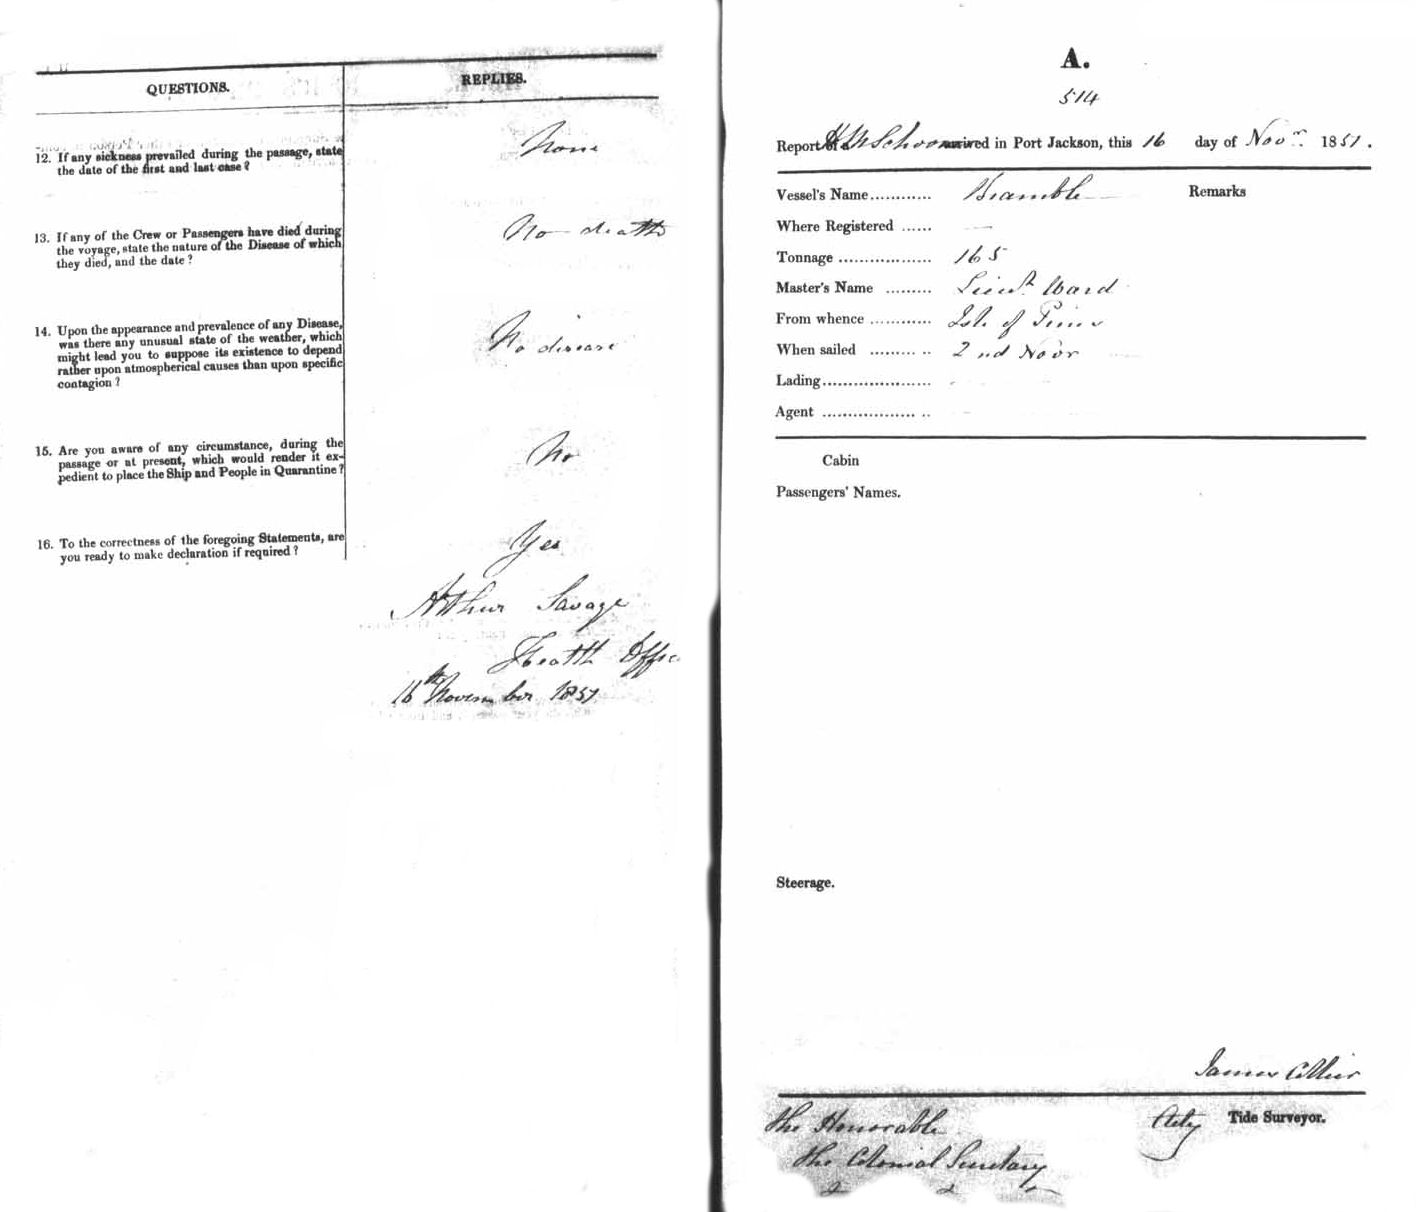 QUESTIONS.
REPLIES.
12. If any sickness prevailed during the passage, state
the date of the first and last case?
None
13. If any of the Crew or Passengers have died during
the voyage, state the nature of the Disease of which
they died, and the date?
No deaths
14. Upon the appearance and prevalence of any Disease,
was there any unusual state of the weather, which
might lead you to suppose its existence to depend
rather upon atmospherical causes than upon specific
contagion?
No disease
15. Are you aware of any circumstance, during the
passage or at present, which would render it ex-
pedient to place the Ship and People in Quarantine?
No
16. To the correctness of the foregoing Statements, are
you ready to make declaration if required?
Yes
Arthur Savage
Health Office
16th November 1851
A.
514
Report of HM Schooner arrived in Port Jackson, this 16 day of Novr. 1851.
Vessel's Name............ Bramble Remarks
Where Registered ......
Tonnage .................. 165
Master's Name ......... Lieut. Ward
From whence ............ Isle of Pines
When sailed ......... .. 2nd Novr
Lading.....................
Agent .................. ..
Cabin
Passengers' Names.
Steerage.
James Collier
Actg Tide Surveyor.
The Honorable
The Colonial Secretary